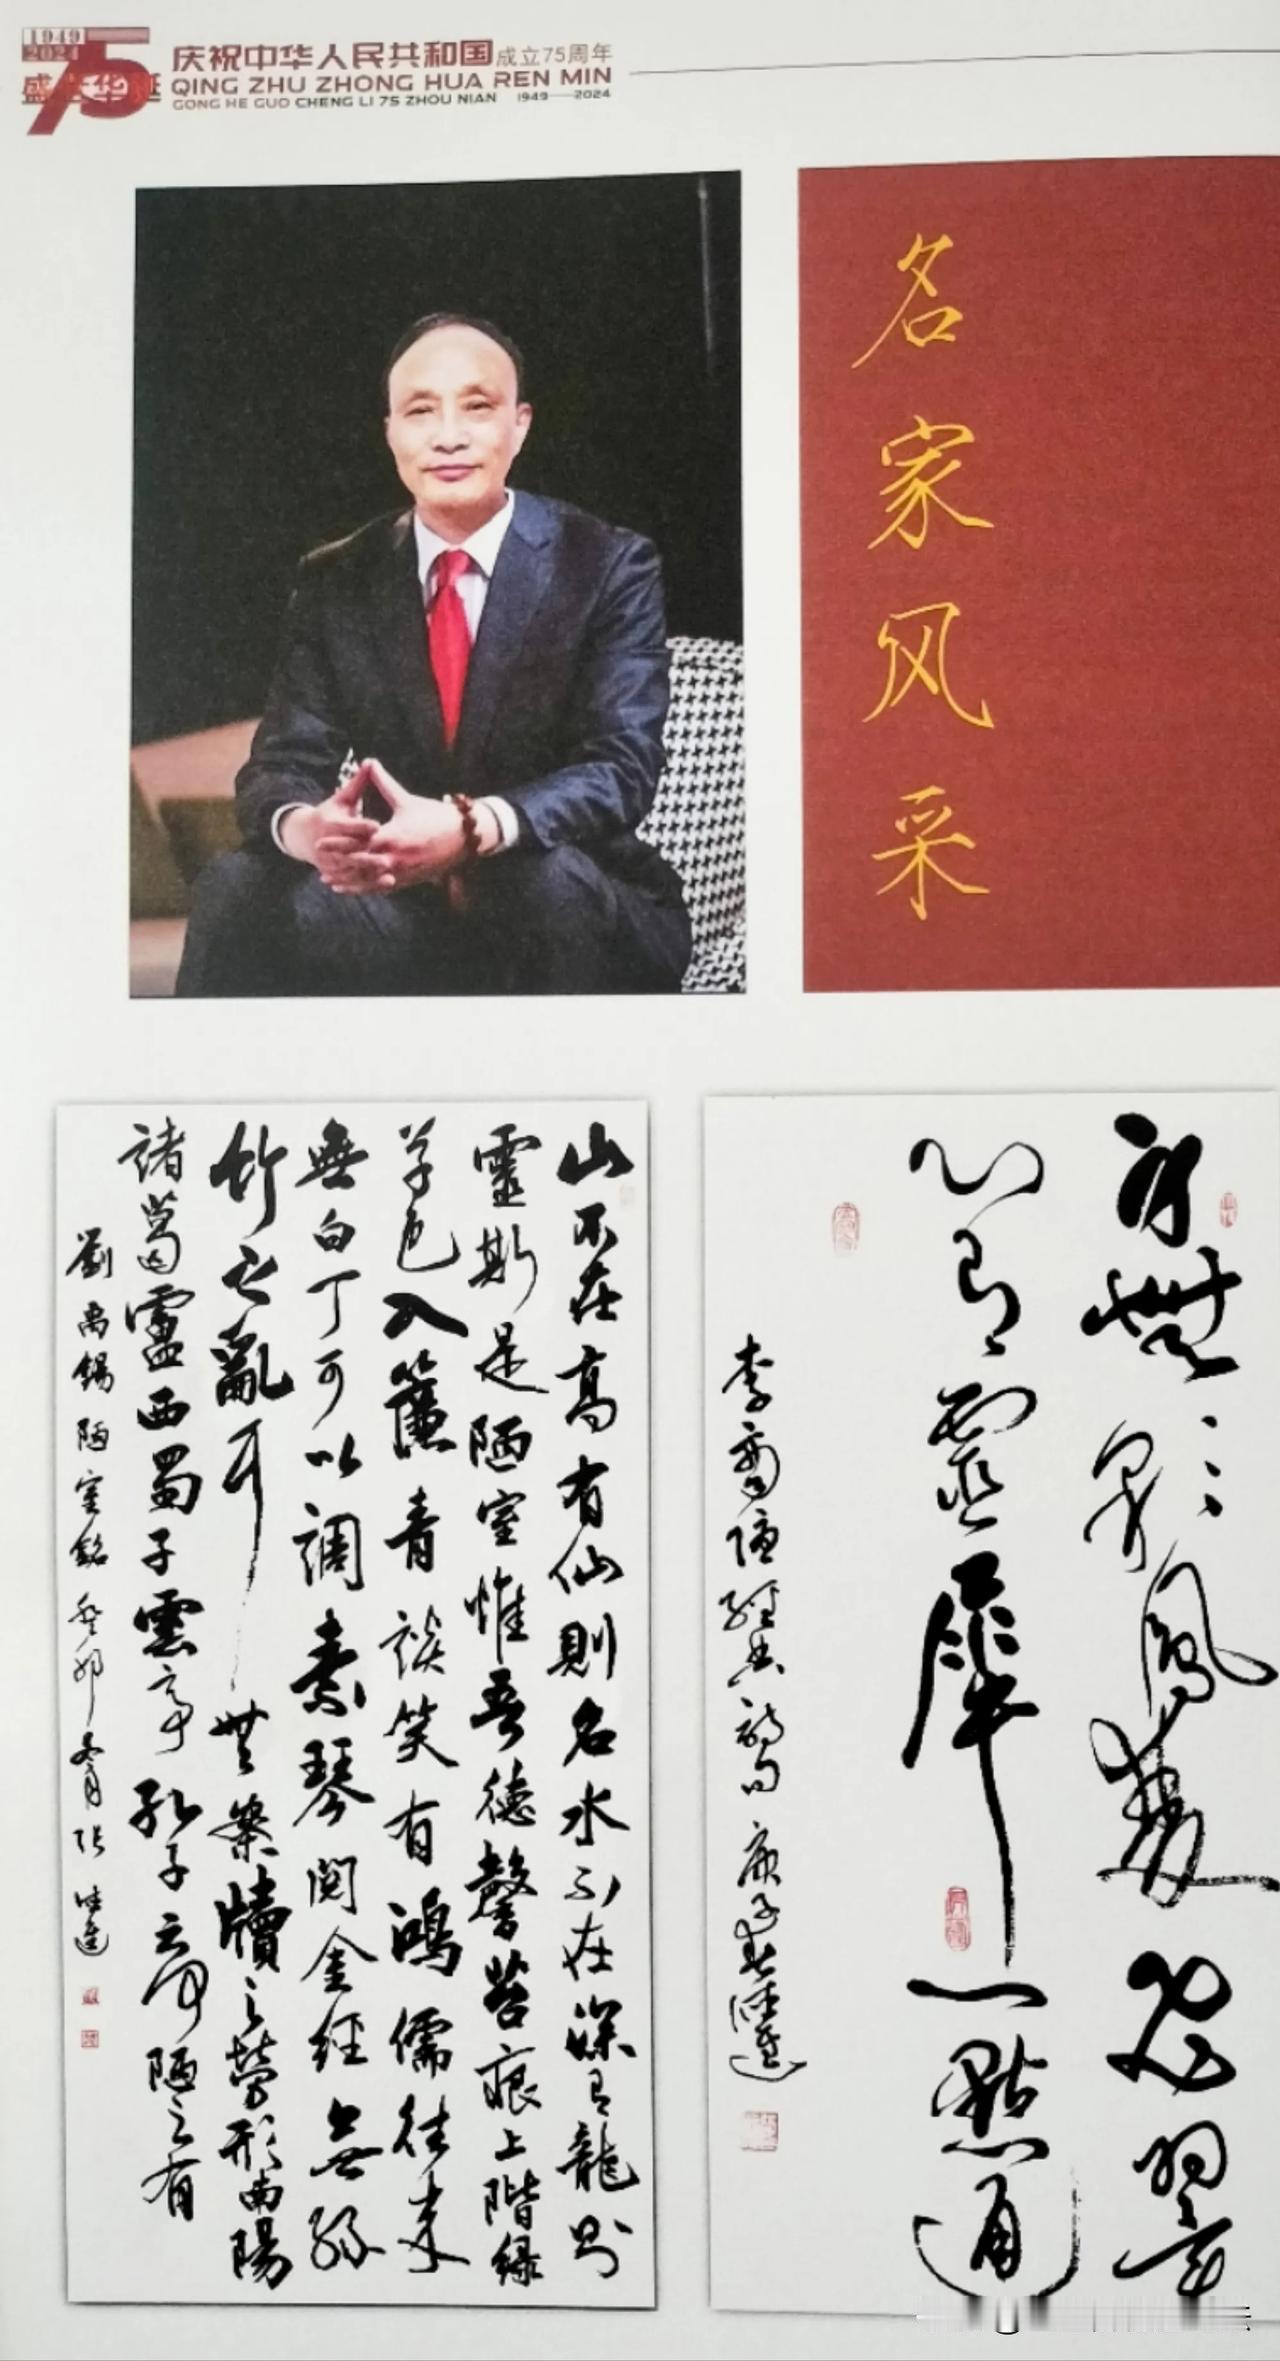 1949
2024
75
盛世华诞
庆祝中华人民共和国成立75周年
QING ZHU ZHONG HUA REN MIN
GONG HE GUO CHENG LI 75 ZHOU NIAN 1949—2024
名家风采
山不在高有仙則名水不在深有龍則
靈斯是陋室惟吾德馨苔痕上階緑
草色入簾青談笑有鴻儒往来
無白丁可以調素琴閱金經無絲
竹之亂耳無案牘之勞形南陽
諸葛廬西蜀子雲亭孔子云何陋之有
劉禹錫陋室銘癸卯冬月張
身無彩鳳雙飛翼
心有靈犀一點通
李商隱經典詩句庚子